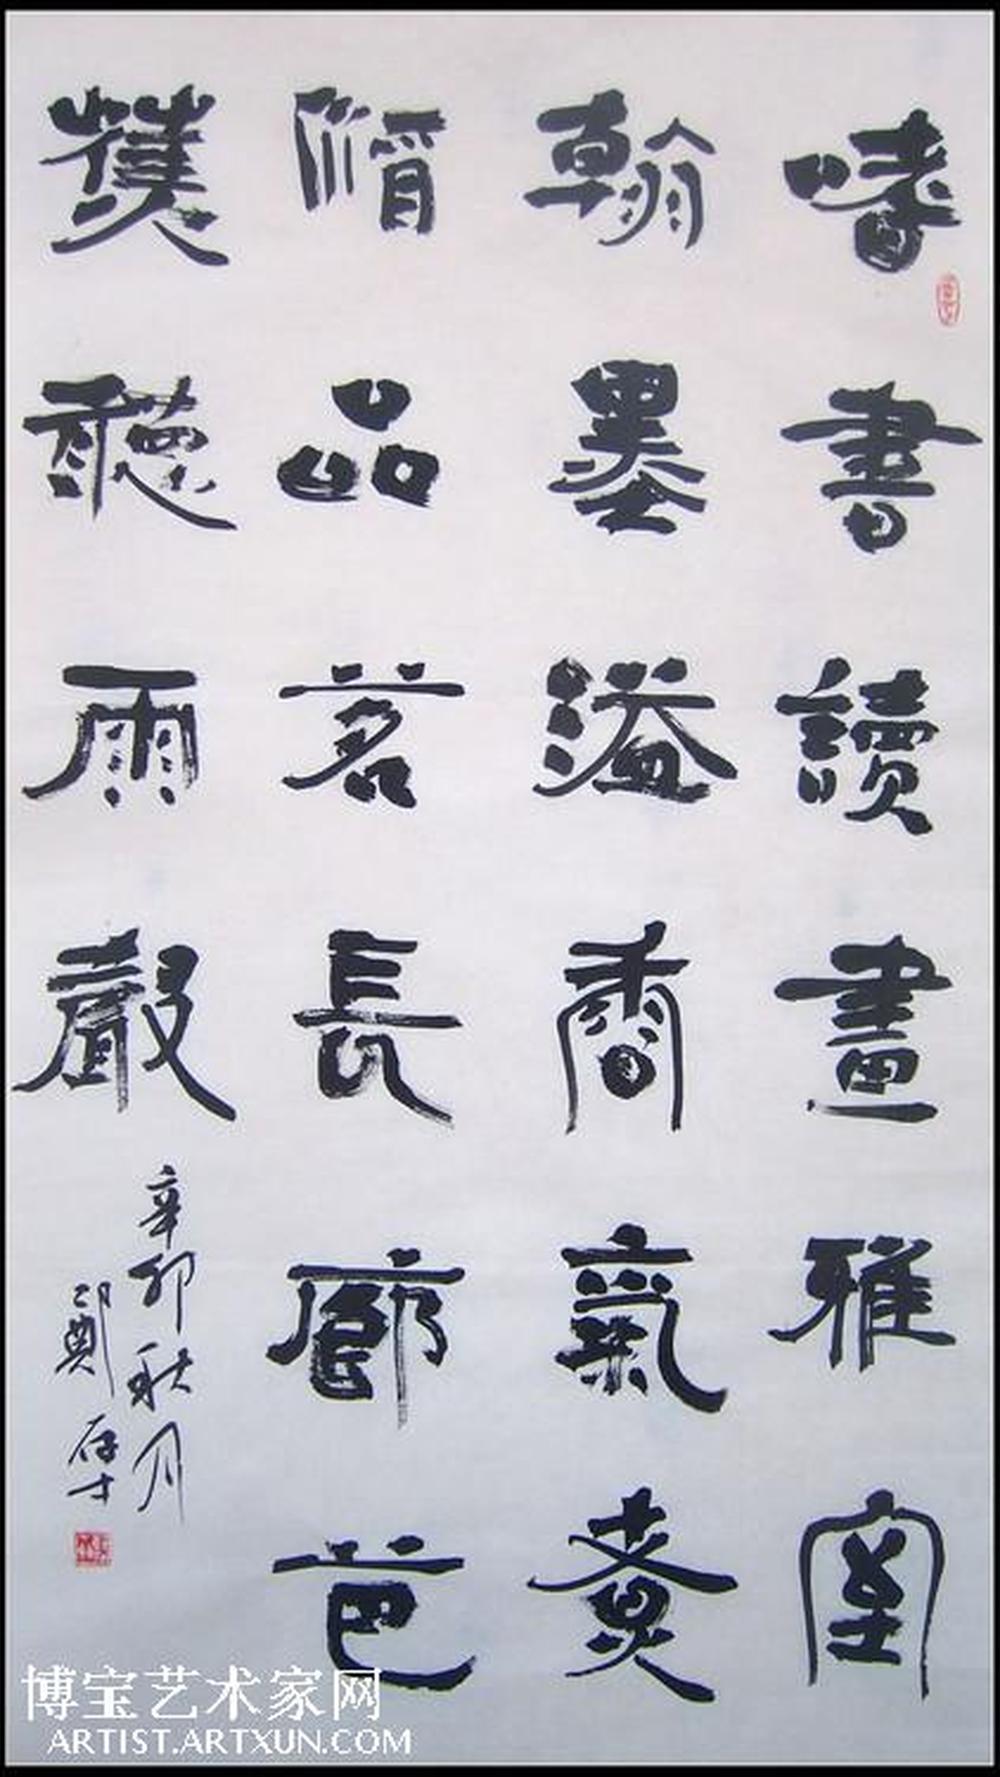 嗜書讀畫雅室
翰墨溢香氣煮
酒品茗長廊芭
蕉聽雨聲
辛卯秋月
鄭存士
博宝艺术家网
ARTIST.ARTXUN.COM